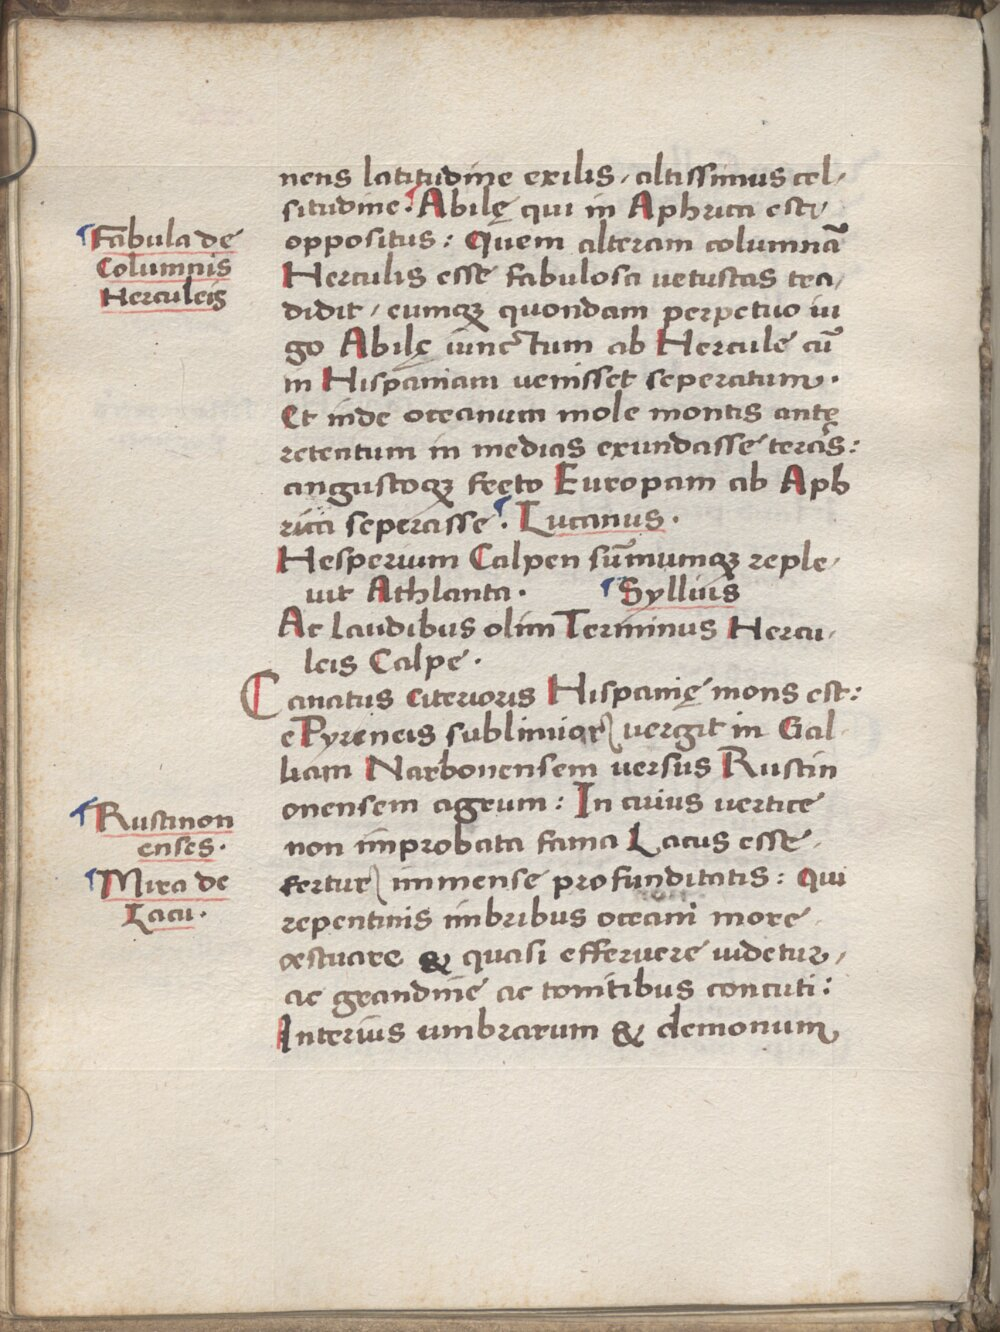 nens latitudine exilis, altissimus cel,
situdine. Abilę qui in Aphrica est,
oppositus: Quem alteram columnā
Fabula de
Columnis
Herculeis
Herculis esse fabulosa vetustas tra,
didit, eumqꝫ quondam perpetuo iu
go Abilę iunctum ab Hercule cū
in Hispaniam venisset seperatum.
Et inde oceanum mole montis antę
retentum in medias exundasse terras:
angustoqꝫ freto Europam ab Aph
rica seperasse. Lucanus.
Hesperium Calpen sūmumqꝫ reple,
vit Athlanta. Syllius
Ac laudibus olim Terminus Hercu,
leis Calpe.
Canatus citerioris Hispanię mons est:
e Pyreneis sublimior vergit in Gal
liam Narbonensem versus Rustin
onensem agrum: In cuius vertice
Rustinon
enses.
non improbata fama Lacus esse
Mira de
Lacu.
fertur immense profunditatis: Qui
repentinis imbribus oceani more
æstuare & quasi effervere videtur,
ac grandine ac tonitibus concuti:
Interius umbrarum & demonum